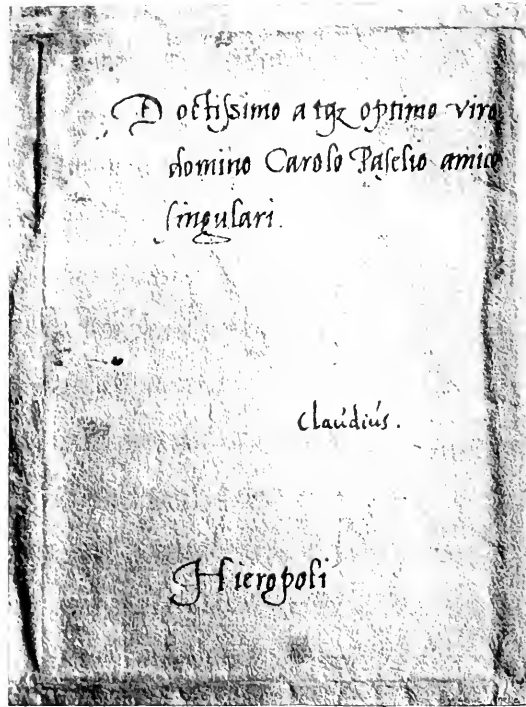 Doctissimo atqꝫ optimo viro
domino Carolo Paselio amico
singulari.
Claudius.
Hieropoli